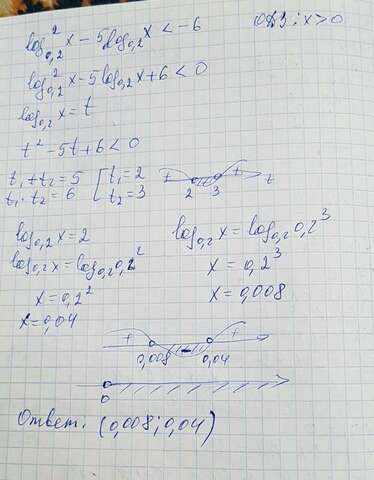 log²₀,₂ x - 5log₀,₂ x < -6 ОДЗ: x > 0
log²₀,₂ x - 5 log₀,₂ x + 6 < 0
log₀,₂ x = t
t² - 5t + 6 < 0
t₁ + t₂ = 5 [ t₁ = 2
t₁ · t₂ = 6 [ t₂ = 3
+ - + 2 3 t
log₀,₂ x = 2
log₀,₂ x = log₀,₂ 0,2²
x = 0,2²
x = 0,04
log₀,₂ x = log₀,₂ 0,2³
x = 0,2³
x = 0,008
+ - +
0,008 0,04
0
Ответ. (0,008; 0,04)